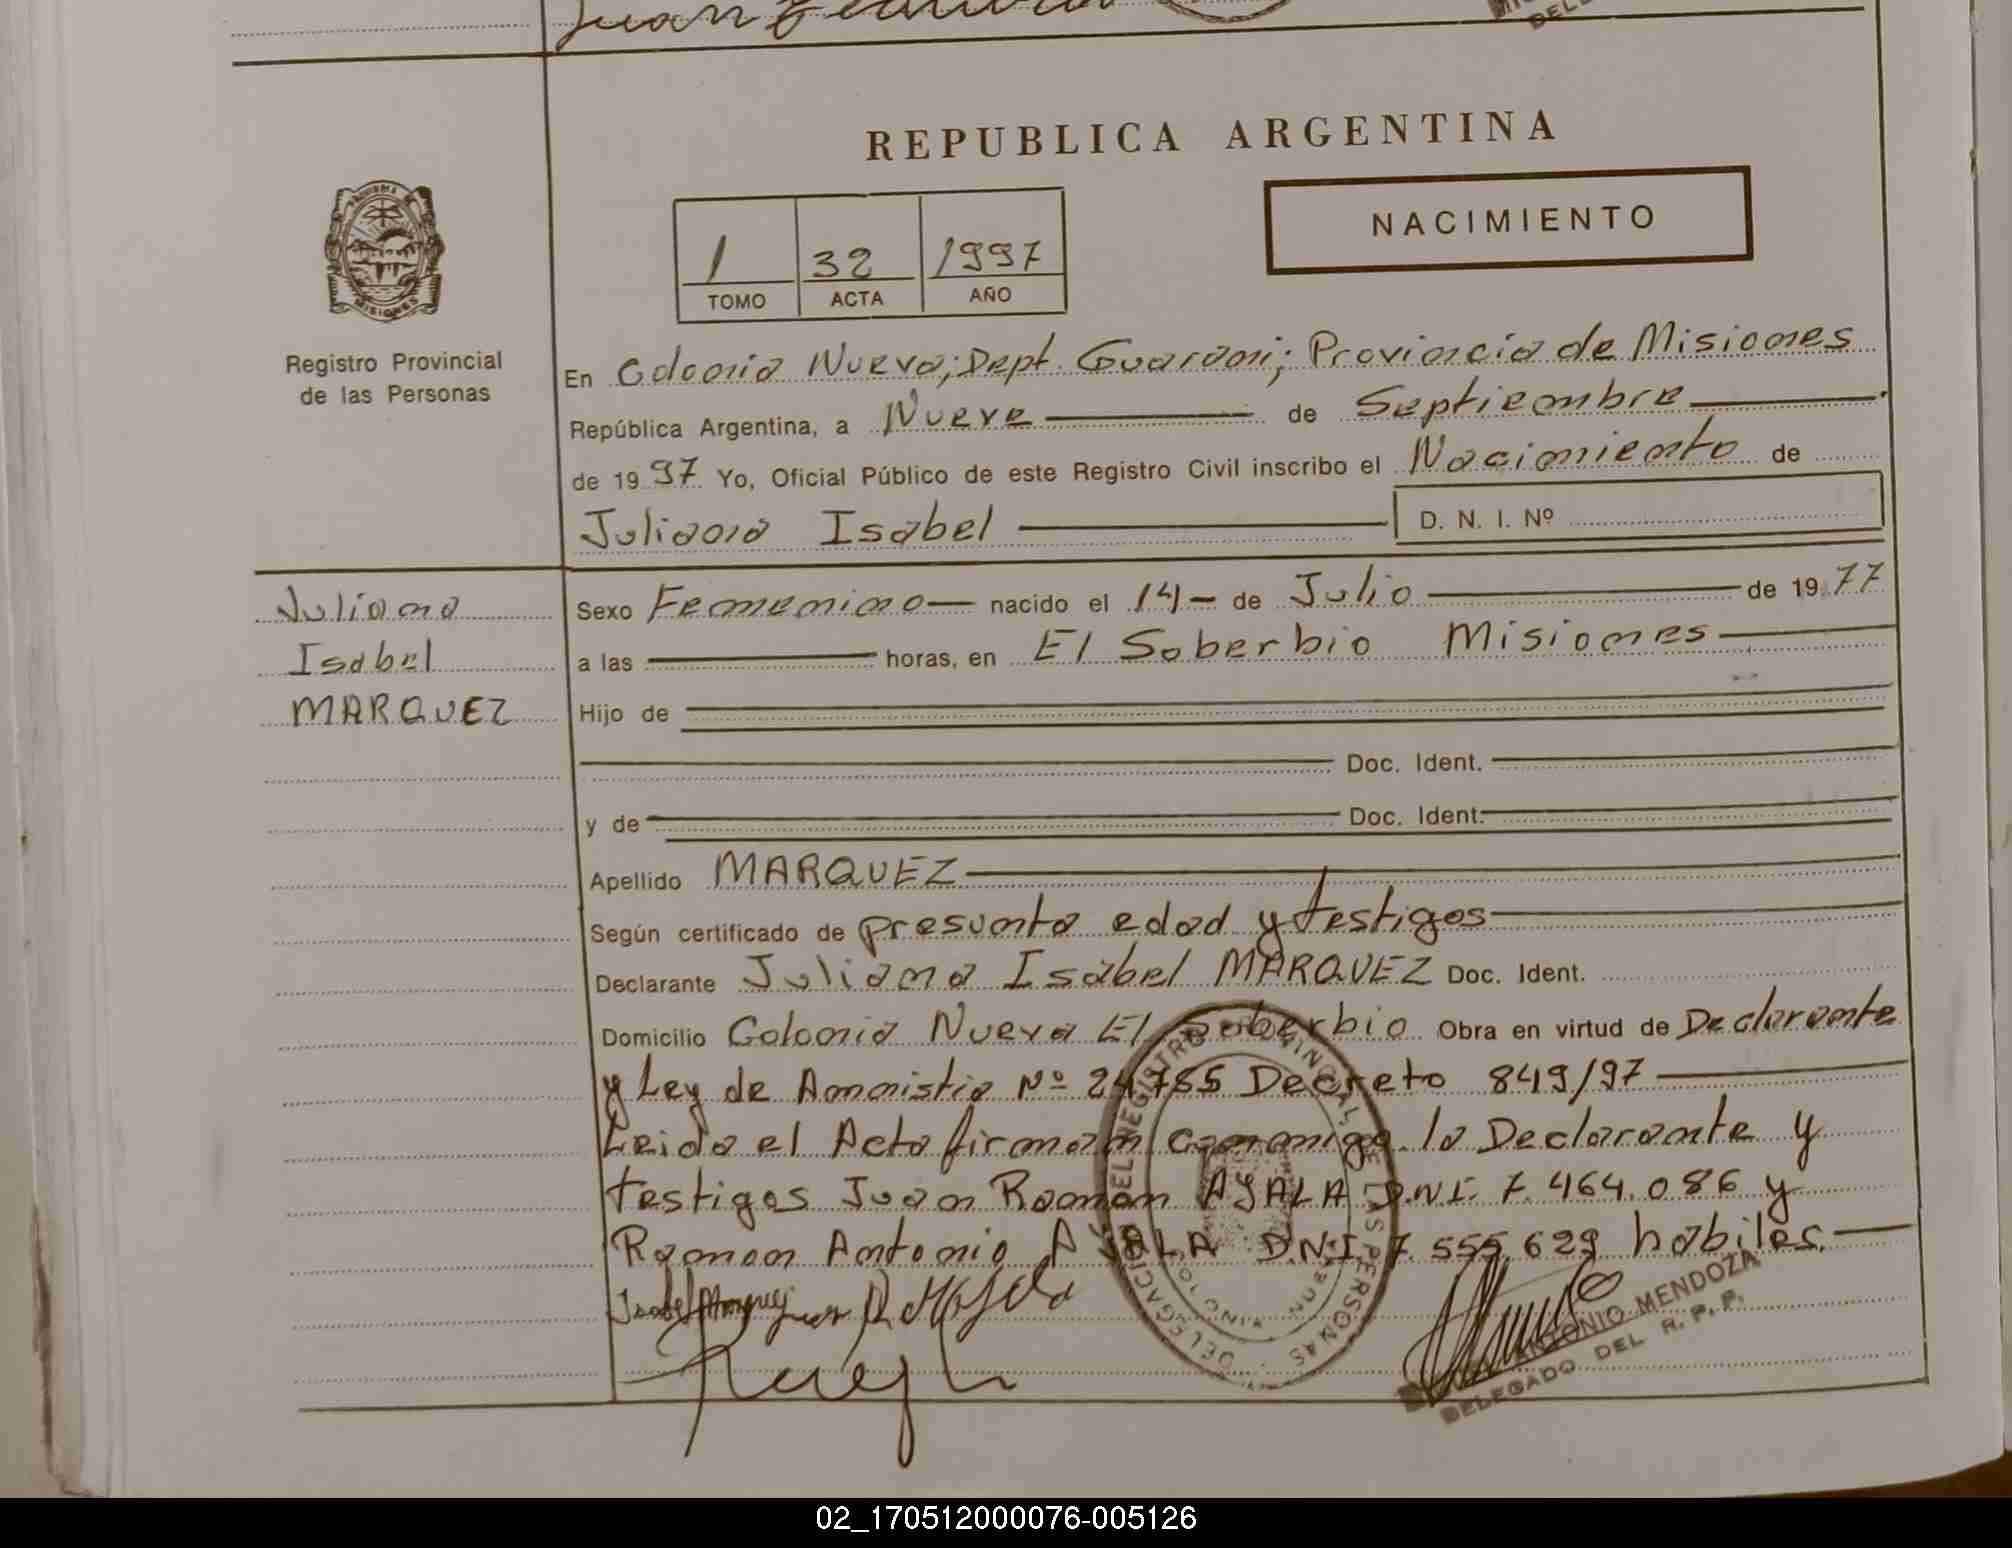 Juan
REPUBLICA ARGENTINA
NACIMIENTO
1 32 1997
TOMO ACTA AÑO
MISIONES
Registro Provincial
de las Personas
En Colonia Nueva; Dept. Guarani; Provincia de Misiones
República Argentina, a Nueve de Septiembre
de 1997 Yo, Oficial Público de este Registro Civil inscribo el Nacimiento de
Juliana Isabel D. N. I. Nº
Juliana
Isabel
MARQUEZ
Sexo Femenino nacido el 14 - de Julio de 1977
a las horas, en El Soberbio Misiones
Hijo de
Doc. Ident.
y de Doc. Ident.
Apellido MARQUEZ
Según certificado de presunta edad y testigos
Declarante Juliana Isabel MARQUEZ Doc. Ident.
Domicilio Colonia Nueva El Soberbio Obra en virtud de Declarante
y Ley de Amnistia Nº 24.755 Decreto 849/97
Leida el Acta firman conmigo la Declarante y
testigos Juan Ramon AYALA D.N.I. 7.464.086 y
Ramon Antonio AYALA D.N.I 7.555.629 habiles.
Isabel Marquez
DELEGACIÓN DEL REGISTRO PROVINCIAL DE LAS PERSONAS
ANTONIO MENDOZA
DELEGADO DEL R. P. P.
02_170512000076-005126